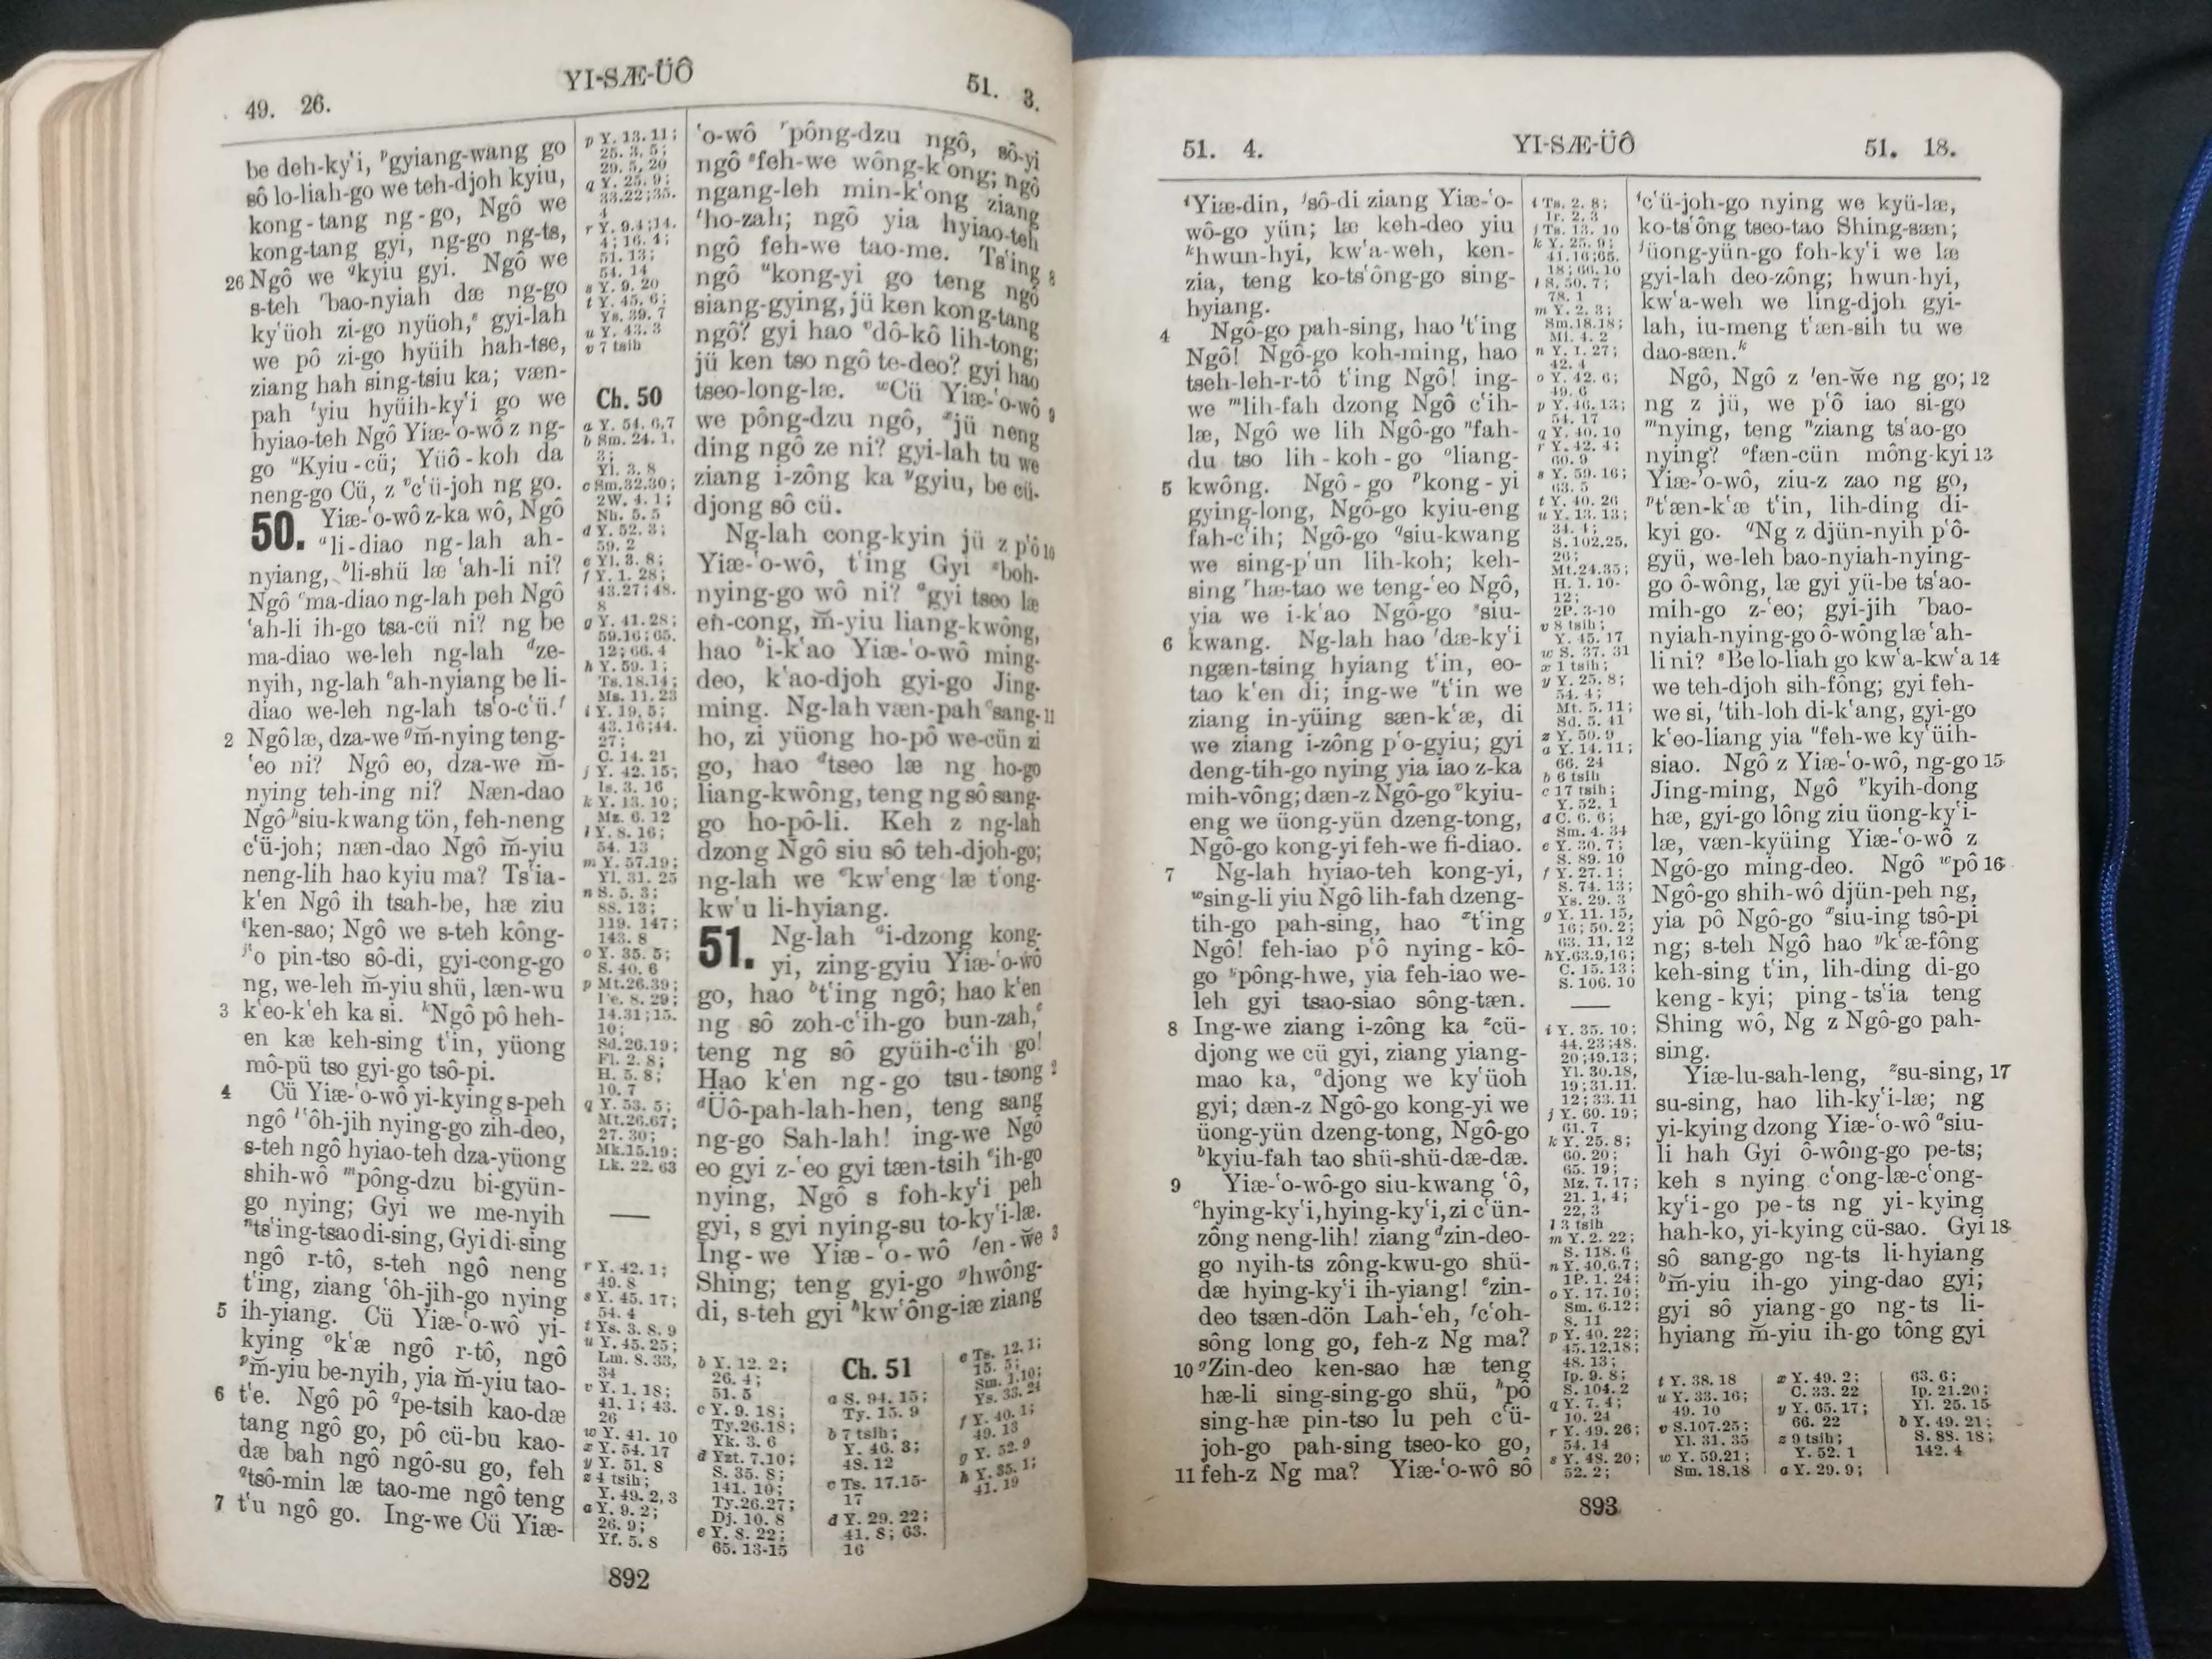 49. 26.
YI-SÆ-ÜÔ
51. 3.
be deh-ky'i, ᵖgyiang-wang go
sô lo-liah-go we teh-djoh kyiu,
kong-tang ng-go, Ngô we
kong-tang gyi, ng-go ng-ts,
26 Ngô we ᑫkyiu gyi. Ngô we
s-teh ʳbao-nyiah dæ ng-go
ky'üoh zi-go nyüoh,ˢ gyi-lah
we pô zi-go hyüih hah-tse,
ziang hah sing-tsiu ka; væn-
pah ᵗyiu hyüih-ky'i go we
hyiao-teh Ngô Yiæ-'o-wô z ng-
go ᵘKyiu-cü; Yüô-koh da
neng-go Cü, z ᵛc'ü-joh ng go.
50. Yiæ-'o-wô z-ka wô, Ngô
ᵃli-diao ng-lah ah-
nyiang, ᵇli-shü læ 'ah-li ni?
Ngô ᶜma-diao ng-lah peh Ngô
'ah-li ih-go tsa-cü ni? ng be
ma-diao we-leh ng-lah ᵈze-
nyih, ng-lah ᵉah-nyiang be li-
diao we-leh ng-lah ts'o-c'ü.ᶠ
2 Ngô læ, dza-we ᵍm̆-nying teng-
'eo ni? Ngô eo, dza-we m̆-
nying teh-ing ni? Næn-dao
Ngô ʰsiu-kwang tön, feh-neng
c'ü-joh; næn-dao Ngô m̆-yiu
neng-lih hao kyiu ma? Ts'ia-
k'en Ngô ih tsah-be, hæ ziu
ⁱken-sao; Ngô we s-teh kông-
ʲ'o pin-tso sô-di, gyi-cong-go
ng, we-leh m̆-yiu shü, læn-wu
3 k'eo-k'eh ka si. ᵏNgô pô heh-
en kæ keh-sing t'in, yüong
mô-pü tso gyi-go tsô-pi.
4 Cü Yiæ-'o-wô yi-kying s-peh
ngô ˡ'ôh-jih nying-go zih-deo,
s-teh ngô hyiao-teh dza-yüong
shih-wô ᵐpông-dzu bi-gyün-
go nying; Gyi we me-nyih
ⁿts'ing-tsao di-sing, Gyi di-sing
ngô r-tô, s-teh ngô neng
t'ing, ziang 'ôh-jih-go nying
5 ih-yiang. Cü Yiæ-'o-wô yi-
kying ᵒk'æ ngô r-tô, ngô
ᵖm̆-yiu be-nyih, yia m̆-yiu tao-
6 t'e. Ngô pô ᑫpe-tsih kao-dæ
tang ngô go, pô cü-bu kao-
dæ bah ngô ngô-su go, feh
ᑫtsô-min læ tao-me ngô teng
7 t'u ngô go. Ing-we Cü Yiæ-
p Y. 13. 11;
25. 3, 5;
29. 5, 20
q Y. 25. 9;
33.22;35.
4
r Y. 9.4;14.
4; 16. 4;
51. 13;
54. 14
s Y. 9. 20
t Y. 45. 6;
Ys. 39. 7
u Y. 43. 3
v 7 tsih
Ch. 50
a Y. 54. 6,7
b Sm. 24. 1,
3;
Yl. 3. 8
c Sm.32.30;
2W. 4. 1;
Nh. 5. 5
d Y. 52. 3;
59. 2
e Yl. 3. 8;
f Y. 1. 28;
43.27;48.
8
g Y. 41. 28;
59.16; 65.
12; 66. 4
h Y. 59. 1;
Ts. 18.14;
Ms. 11. 23
i Y. 19. 5;
43.16;44.
27;
C. 14. 21
j Y. 42. 15;
Is. 3. 16
k Y. 13. 10;
Mz. 6. 12
l Y. 8. 16;
54. 13
m Y. 57.19;
Yl. 31. 25
n S. 5. 3;
88. 13;
119. 147;
143. 8
o Y. 35. 5;
S. 40. 6
p Mt.26.39;
14.31;15.
10;
Sd.26.19;
Fl. 2. 8;
H. 5. 8;
10. 7
q Y. 53. 5;
Mt.26.67;
27. 30;
Mk.15.19;
Lk. 22. 63
r Y. 42. 1;
49. 8
s Y. 45. 17;
54. 4
t Ys. 3. 8, 9
u Y. 45. 25;
Lm. 8. 33,
34
v Y. 1. 18;
41. 1; 43.
26
w Y. 41. 10
x Y. 54. 17
y Y. 51. 8
z 4 tsih;
Y. 49. 2, 3
a Y. 9. 2;
26. 9;
Yf. 5. 8
'o-wô ʳpông-dzu ngô, sô-yi
ngô ˢfeh-we wông-k'ong; ngô
ngang-leh min-k'ong ziang
ᵗho-zah; ngô yia hyiao-teh
ngô feh-we tao-me. Ts'ing 8
ngô ᵘkong-yi go teng ngô
siang-gying, jü ken kong-tang
ngô? gyi hao ᵛdô-kô lih-tong;
jü ken tso ngô te-deo? gyi hao
tseo-long-læ. ʷCü Yiæ-'o-wô 9
we pông-dzu ngô, ˣjü neng
ding ngô ze ni? gyi-lah tu we
ziang i-zông ka ʸgyiu, be cü-
djong sô cü.
Ng-lah cong-kyin jü z p'ô 10
Yiæ-'o-wô, t'ing Gyi ᶻboh-
nying-go wô ni? ᵃgyi tseo læ
en-cong, m̆-yiu liang-kwông,
hao ᵇi-k'ao Yiæ-'o-wô ming-
deo, k'ao-djoh gyi-go Jing-
ming. Ng-lah væn-pah ᶜsang- 11
ho, zi yüong ho-pô we-cün zi
go, hao ᵈtseo læ ng ho-go
liang-kwông, teng ng sô sang-
go ho-pô-li. Keh z ng-lah
dzong Ngô siu sô teh-djoh-go;
ng-lah we ᵉkw'eng læ t'ong-
kw'u li-hyiang.
51. Ng-lah ᵃi-dzong kong-
yi, zing-gyiu Yiæ-'o-wô
go, hao ᵇt'ing ngô; hao k'en
ng sô zoh-c'ih-go bun-zah,ᶜ
teng ng sô gyüih-c'ih go!
Hao k'en ng-go tsu-tsong 2
ᵈÜô-pah-lah-hen, teng sang
ng-go Sah-lah! ing-we Ngô
eo gyi z-'eo gyi tæn-tsih ᵉih-go
nying, Ngô s foh-ky'i peh
gyi, s gyi nying-su to-ky'i-læ.
Ing-we Yiæ-'o-wô ᶠen-w̆e 3
Shing; teng gyi-go ᵍhwông-
di, s-teh gyi ʰkw'ông-iæ ziang
b Y. 12. 2;
26. 4;
51. 5
c Y. 9. 18;
Ty.26.18;
Yk. 3. 6
d Yzt. 7.10;
S. 35. 8;
141. 10;
Ty.26.27;
Dj. 10. 8
e Y. 8. 22;
65. 13-15
Ch. 51
a S. 94. 15;
Ty. 15. 9
b 7 tsih;
Y. 46. 3;
48. 12
c Ts. 17.15-
17
d Y. 29. 22;
41. 8; 63.
16
e Ts. 12. 1;
15. 5;
Sm. 1.10;
Ys. 33. 24
f Y. 40. 1;
49. 13
g Y. 52. 9
h Y. 35. 1;
41. 19
892
51. 4.
YI-SÆ-ÜÔ
51. 18.
ⁱYiæ-din, ʲsô-di ziang Yiæ-'o-
wô-go yün; læ keh-deo yiu
ᵏhwun-hyi, kw'a-weh, ken-
zia, teng ko-ts'ông-go sing-
hyiang.
4 Ngô-go pah-sing, hao ˡt'ing
Ngô! Ngô-go koh-ming, hao
tseh-leh-r-tô t'ing Ngô! ing-
we ᵐlih-fah dzong Ngô c'ih-
læ, Ngô we lih Ngô-go ⁿfah-
du tso lih-koh-go ᵒliang-
5 kwông. Ngô-go ᵖkong-yi
gying-long, Ngô-go kyiu-eng
fah-c'ih; Ngô-go ᑫsiu-kwang
we sing-p'un lih-koh; keh-
sing ʳhæ-tao we teng-'eo Ngô,
yia we i-k'ao Ngô-go ˢsiu-
6 kwang. Ng-lah hao ᵗdæ-ky'i
ngæn-tsing hyiang t'in, eo-
tao k'en di; ing-we ᵘt'in we
ziang in-yüing sæn-k'æ, di
we ziang i-zông p'o-gyiu; gyi
deng-tih-go nying yia iao z-ka
mih-vông; dæn-z Ngô-go ᵛkyiu-
eng we üong-yün dzeng-tong,
Ngô-go kong-yi feh-we fi-diao.
7 Ng-lah hyiao-teh kong-yi,
ʷsing-li yiu Ngô lih-fah dzeng-
tih-go pah-sing, hao ˣt'ing
Ngô! feh-iao p'ô nying-kô-
go ʸpông-hwe, yia feh-iao we-
leh gyi tsao-siao sông-tæn.
8 Ing-we ziang i-zông ka ᶻcü-
djong we cü gyi, ziang yiang-
mao ka, ᵃdjong we ky'üoh
gyi; dæn-z Ngô-go kong-yi we
üong-yün dzeng-tong, Ngô-go
ᵇkyiu-fah tao shü-shü-dæ-dæ.
9 Yiæ-'o-wô-go siu-kwang 'ô,
ᶜhying-ky'i, hying-ky'i, zi c'ün-
zông neng-lih! ziang ᵈzin-deo-
go nyih-ts zông-kwu-go shü-
dæ hying-ky'i ih-yiang! ᵉzin-
deo tsæn-dön Lah-'eh, ᶠc'oh-
sông long go, feh-z Ng ma?
10 ᵍZin-deo ken-sao hæ teng
hæ-li sing-sing-go shü, ʰpô
sing-hæ pin-tso lu peh c'ü-
joh-go pah-sing tseo-ko go,
11 feh-z Ng ma? Yiæ-'o-wô sô
i Ts. 2. 8;
Ir. 2. 3
j Ts. 13. 10
k Y. 25. 9;
41.16;65.
18; 66. 10
l S. 50. 7;
78. 1
m Y. 2. 3;
Sm.18.18;
Mi. 4. 2
n Y. 1. 27;
42. 4
o Y. 42. 6;
49. 6
p Y. 46. 13;
54. 17
q Y. 40. 10
r Y. 42. 4;
60. 9
s Y. 59. 16;
63. 5
t Y. 40. 26
u Y. 13. 13;
34. 4;
S. 102.25,
26;
Mt.24.35;
H. 1. 10-
12;
2P. 3-10
v 8 tsih;
Y. 45. 17
w S. 37. 31
x 1 tsih;
y Y. 25. 8;
54. 4;
Mt. 5. 11;
Sd. 5. 41
z Y. 50. 9
a Y. 14. 11;
66. 24
b 6 tsih
c 17 tsih;
Y. 52. 1
d C. 6. 6;
Sm. 4. 34
e Y. 30. 7;
S. 89. 10
f Y. 27. 1;
S. 74. 13;
Ys. 29. 3
g Y. 11. 15,
16; 50. 2;
63. 11, 12
h Y.63.9,16;
C. 15. 13;
S. 106. 10
i Y. 35. 10;
44. 23;48.
20;49.13;
Yl. 30.18,
19;31.11.
12; 33. 11
j Y. 60. 19;
61. 7
k Y. 25. 8;
60. 20;
65. 19;
Mz. 7. 17;
21. 1, 4;
22. 3
l 3 tsih
m Y. 2. 22;
S. 118. 6
n Y. 40.6,7;
1P. 1. 24;
o Y. 17. 10;
Sm. 6.12;
8. 11
p Y. 40. 22;
45. 12,18;
48. 13;
Ip. 9. 8;
S. 104. 2
q Y. 7. 4;
10. 24
r Y. 49. 26;
54. 14
s Y. 48. 20;
52. 2;
ⁱc'ü-joh-go nying we kyü-læ,
ko-ts'ông tseo-tao Shing-sæn;
ʲüong-yün-go foh-ky'i we læ
gyi-lah deo-zông; hwun-hyi,
kw'a-weh we ling-djoh gyi-
lah, iu-meng t'æn-sih tu we
dao-sæn.ᵏ
Ngô, Ngô z ˡen-w̆e ng go; 12
ng z jü, we p'ô iao si-go
ᵐnying, teng ⁿziang ts'ao-go
nying? ᵒfæn-cün mông-kyi 13
Yiæ-'o-wô, ziu-z zao ng go,
ᵖt'æn-k'æ t'in, lih-ding di-
kyi go. ᑫNg z djün-nyih p'ô-
gyü, we-leh bao-nyiah-nying-
go ô-wông, læ gyi yü-be ts'ao-
mih-go z-'eo; gyi-jih ʳbao-
nyiah-nying-go ô-wông læ 'ah-
li ni? ˢBe lo-liah go kw'a-kw'a 14
we teh-djoh sih-fông; gyi feh-
we si, ᵗtih-loh di-k'ang, gyi-go
k'eo-liang yia ᵘfeh-we ky'üih-
siao. Ngô z Yiæ-'o-wô, ng-go 15
Jing-ming, Ngô ᵛkyih-dong
hæ, gyi-go lông ziu üong-ky'i-
læ, væn-kyüing Yiæ-'o-wô z
Ngô-go ming-deo. Ngô ʷpô 16
Ngô-go shih-wô djün-peh ng,
yia pô Ngô-go ˣsiu-ing tsô-pi
ng; s-teh Ngô hao ʸk'æ-fông
keh-sing t'in, lih-ding di-go
keng-kyi; ping-ts'ia teng
Shing wô, Ng z Ngô-go pah-
sing.
Yiæ-lu-sah-leng, ᶻsu-sing, 17
su-sing, hao lih-ky'i-læ; ng
yi-kying dzong Yiæ-'o-wô ᵃsiu-
li hah Gyi ô-wông-go pe-ts;
keh s nying c'ong-læ-c'ong-
ky'i-go pe-ts ng yi-kying
hah-ko, yi-kying cü-sao. Gyi 18
sô sang-go ng-ts li-hyiang
ᵇm̆-yiu ih-go ying-dao gyi;
gyi sô yiang-go ng-ts li-
hyiang m̆-yiu ih-go tông gyi
t Y. 38. 18
u Y. 33. 16;
49. 10
v S.107.25;
Yl. 31. 35
w Y. 59.21;
Sm. 18.18
x Y. 49. 2;
C. 33. 22
y Y. 65. 17;
66. 22
z 9 tsih;
Y. 52. 1
a Y. 29. 9;
63. 6;
Ip. 21.20;
Yl. 25. 15
b Y. 49. 21;
S. 88. 18;
142. 4
893